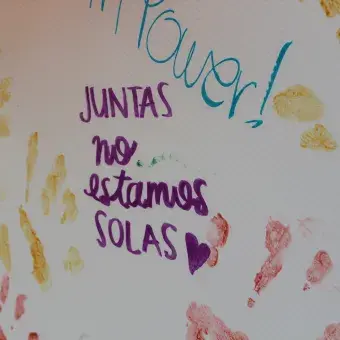 Power!
JUNTAS
no
estamos
SOLAS